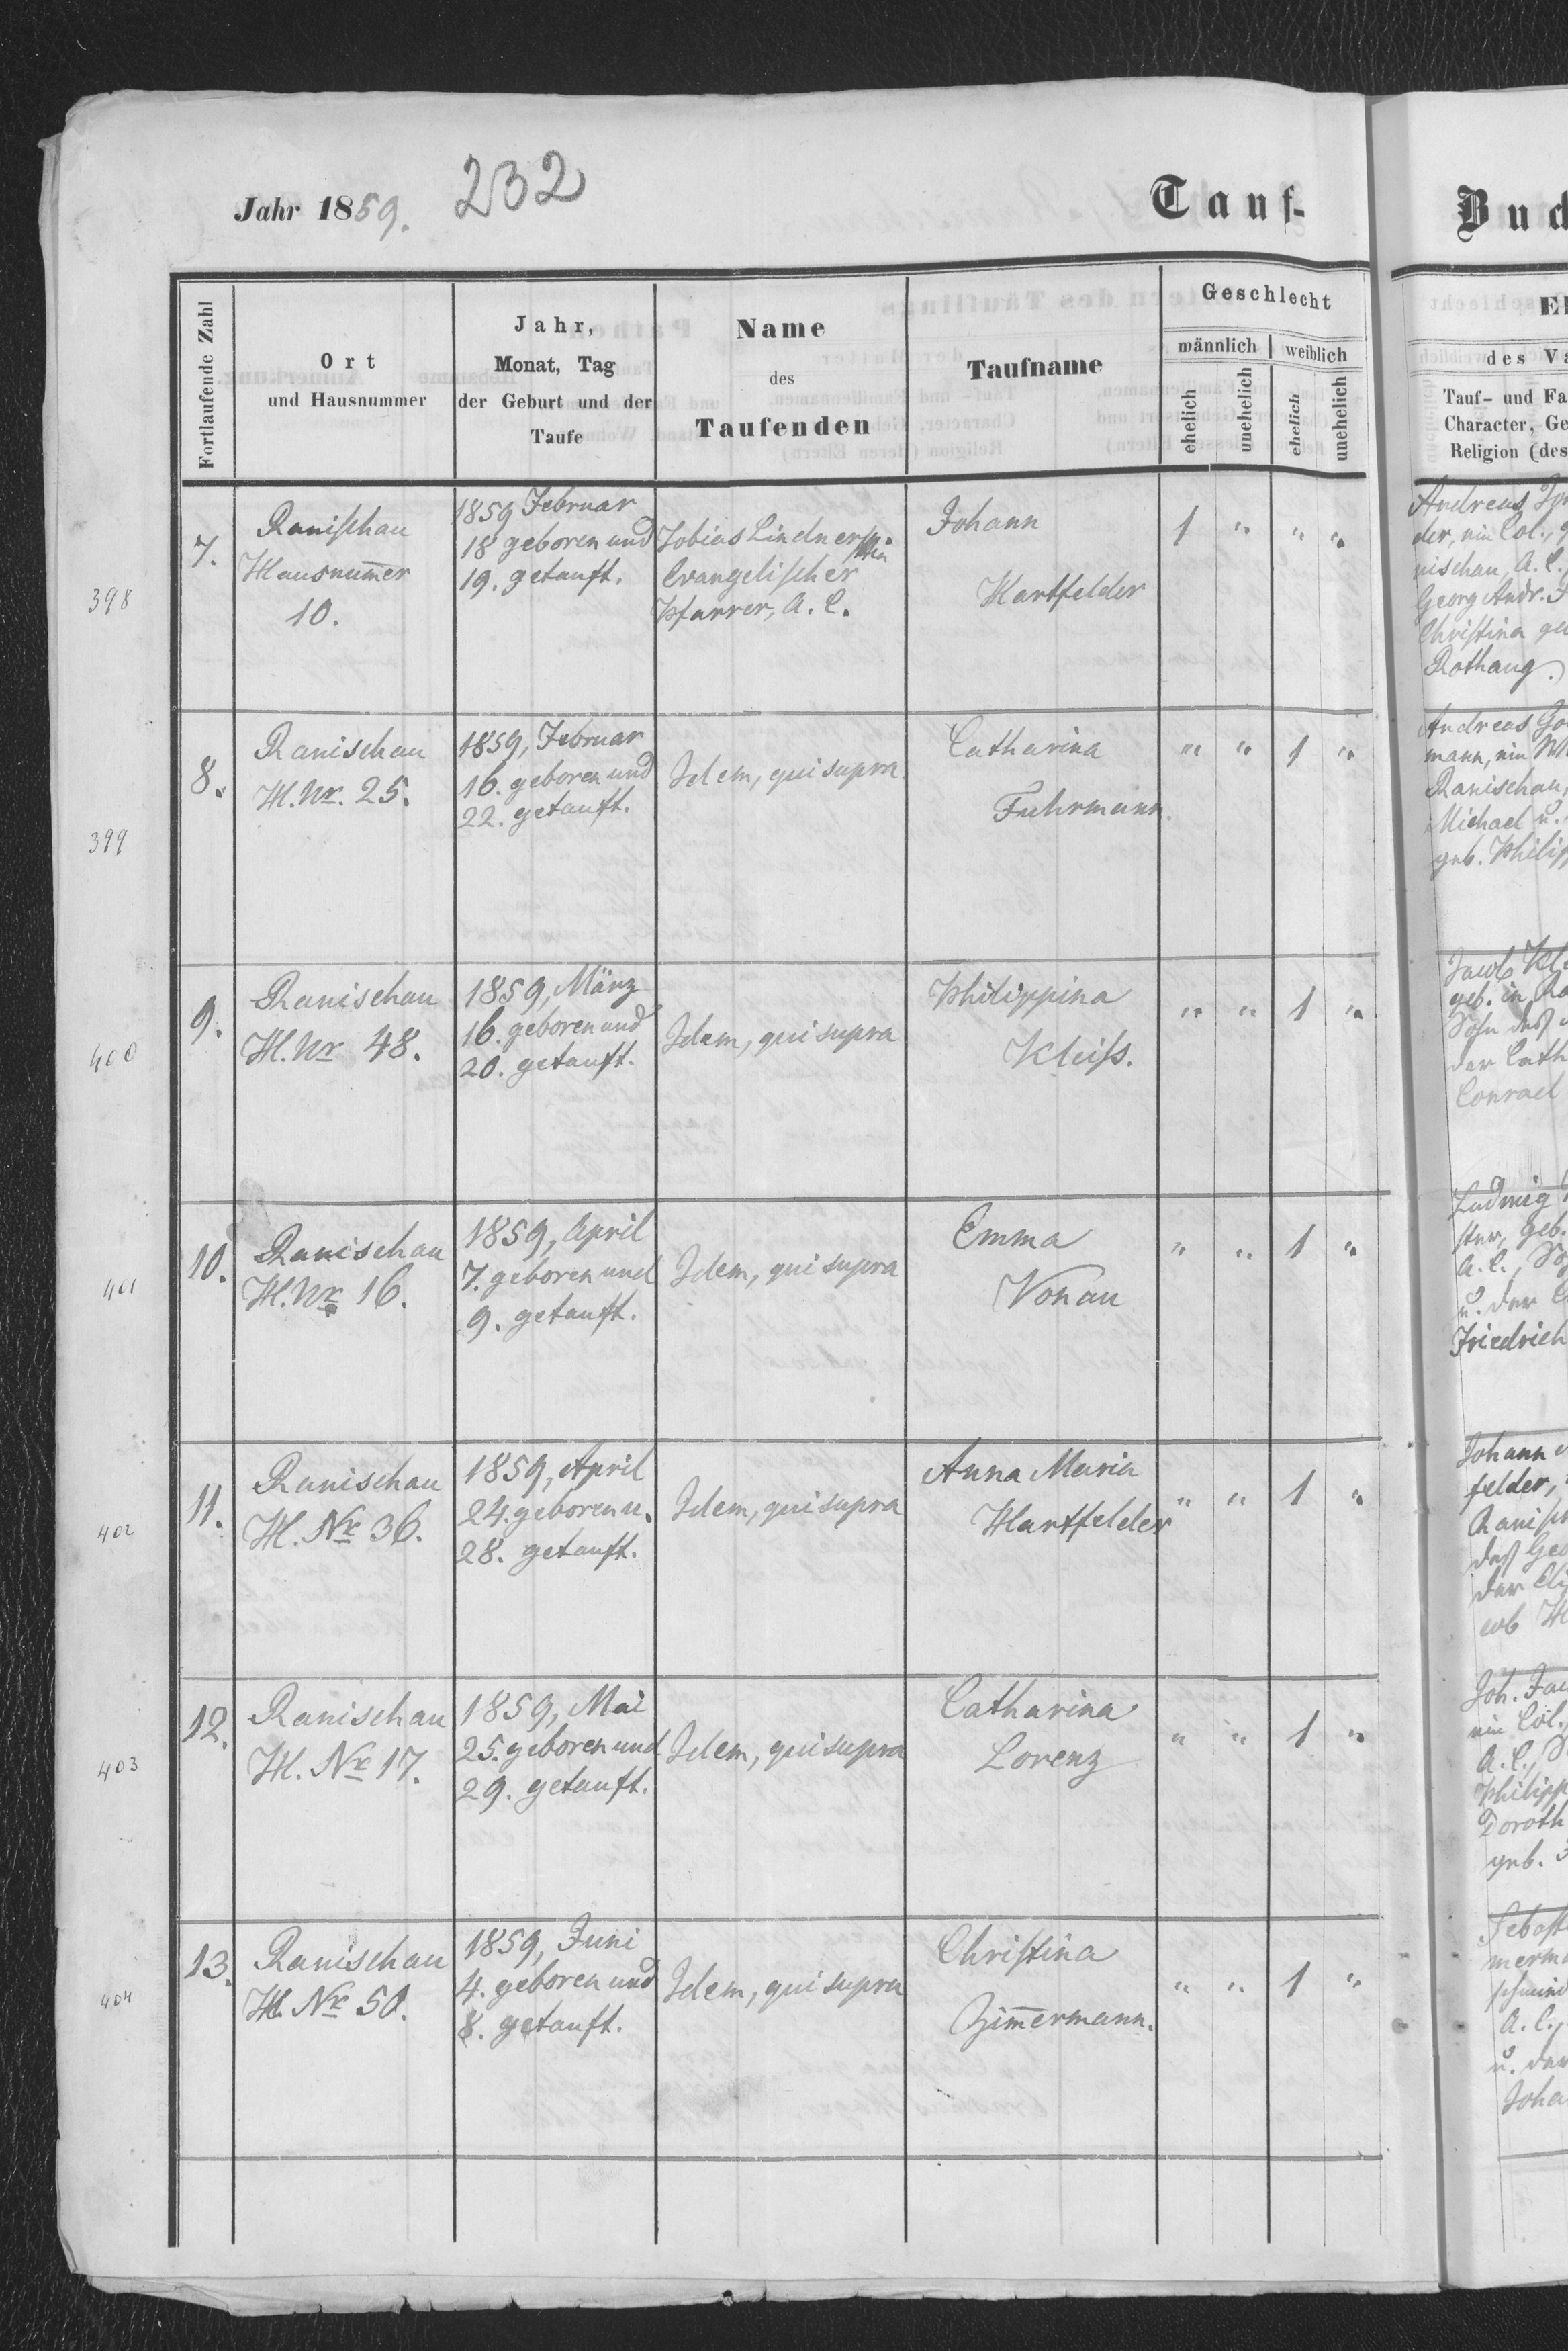 Jahr 1859.
232
Tauf-
Fortlaufende Zahl
Ort
und Hausnummer
Jahr,
Monat, Tag
der Geburt und der
Taufe
Name
des
Taufenden
Taufname
Geschlecht
männlich
weiblich
ehelich
unehelich
ehelich
unehelich
398
7.
Ranischau
Hausnum̅er
10.
1859 Februar
18 geboren und
19. getauft.
Tobias Lindner
Evangelischer
Pfarrer, A. C.
Johann
Hartfelder
1 " " "
399
8.
Ranischau
H. Nr. 25.
1859, Februar
16. geboren und
22. getauft.
Idem, qui supra
Catharina
Fuhrmann.
" " 1 "
400
9.
Ranischau
H. Nr 48.
1859, März
16. geboren und
20. getauft.
Idem, qui supra
Philippina
Kleiss.
" " 1 "
401
10.
Ranischau
H. Nr 16.
1859, April
7. geboren und
9. getauft.
Idem, qui supra
Emma
Vonau
" " 1 "
402
11.
Ranischau
H. Nr 36.
1859, April
24. geboren u.
28. getauft.
Idem, qui supra
Anna Maria
Hartfelder
" " 1 "
403
12.
Ranischau
H. Nr 17.
1859, Mai
25. geboren und
29. getauft.
Idem, qui supra
Catharina
Lorenz
" " 1 "
404
13.
Ranischau
H. Nr 50.
1859, Juni
4. geboren und
8. getauft.
Idem, qui supra
Christina
Zim̅ermann.
" " 1 "
Bu
des
Tauf- und
Character,
Religion
Andreas
der, ein Col.,
nischau, A. C.
Georg Andr.
Christina
Rothaug.
Andreas
mann, ein
Ranischau,
Michael u.
geb.
Jacob
geb. in
Sohn des
der
Conrad
Ludwig
ster, geb.
A. C.,
u. der
Friedrich
Johann
felder,
des
der
Joh.
ein Col.
A. C.,
geb.
A. C.,
u. der